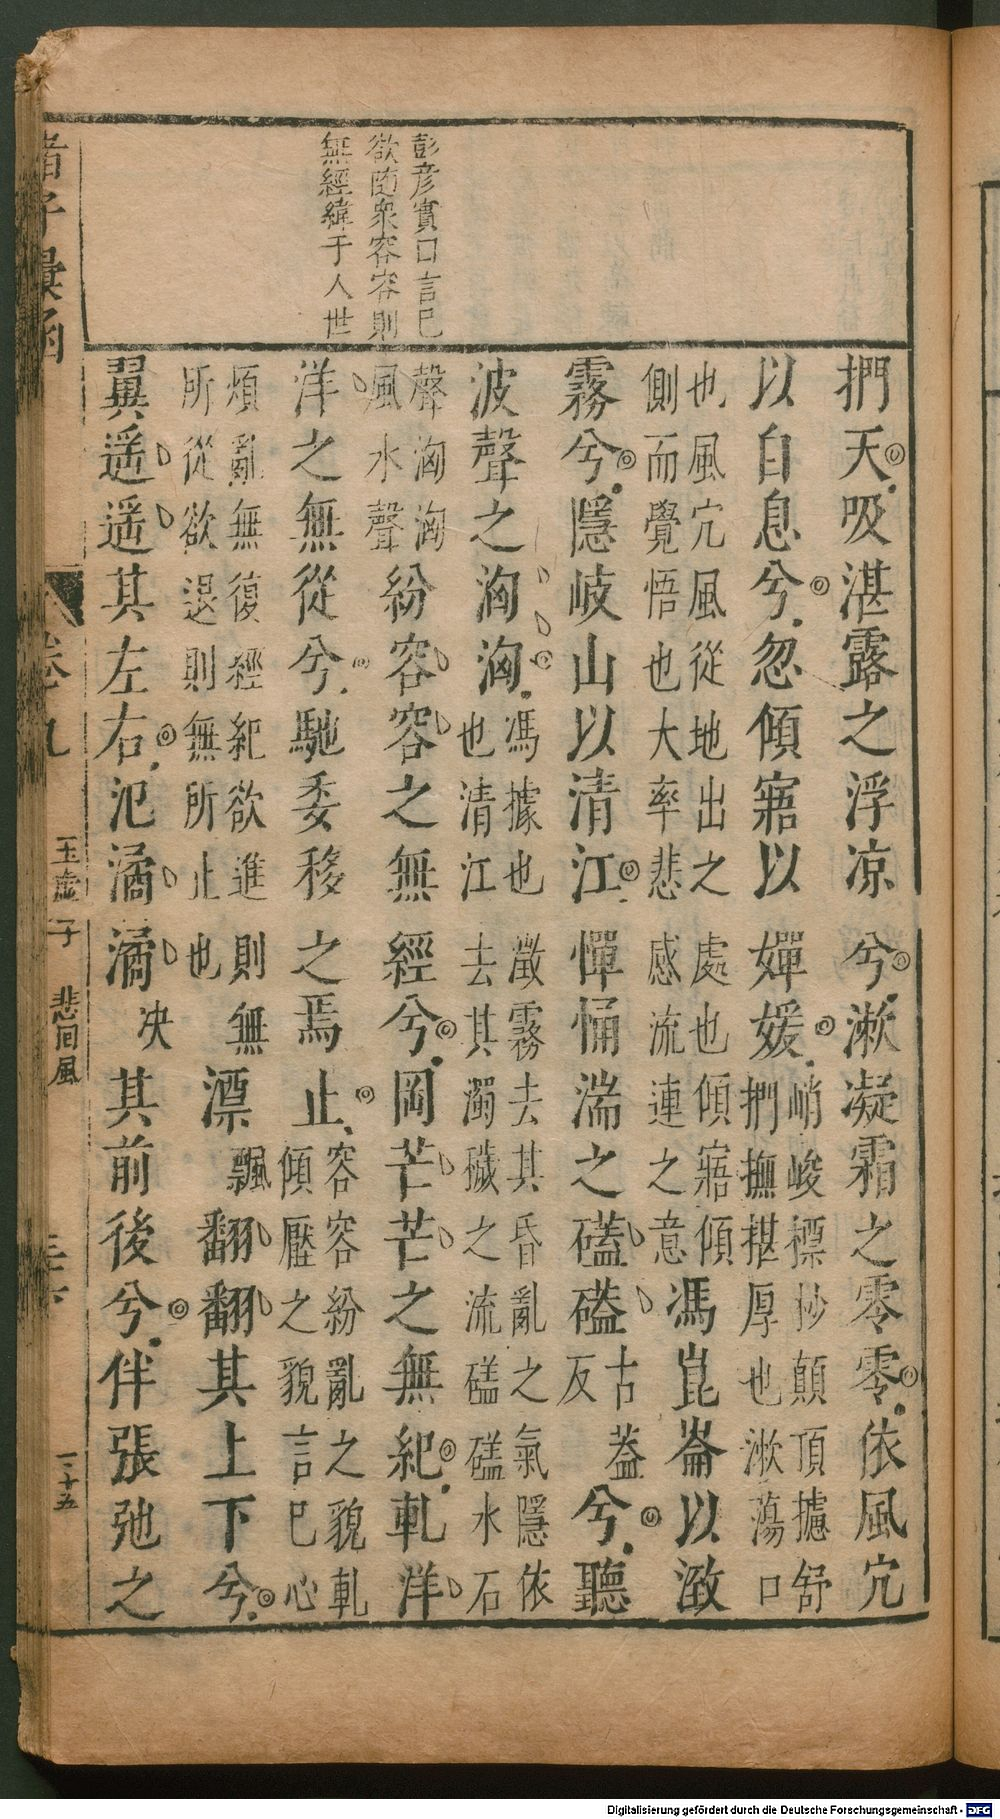 彭彥實口言巳
欲随衆容容則
無經緯于人世
捫天吸湛露之浮凉兮漱凝霜之零零依風宂
以自息兮忽傾寤以嬋媛
峭峻標抄顛頂攄舒
捫撫揕厚也漱蕩口
也風宂風從地出之處也傾寤傾
側而覺悟也大率悲感流連之意
馮崑崙以澂
霧兮隱岐山以清江憚悀湍之礚礚
古蓋
反
兮聽
波聲之洶洶
馮據也澂霧去其昏亂之氣隱依
也清江去其濁穢之流礚礚水石
聲洶洶
風水聲
紛容容之無經兮罔芒芒之無紀軋洋
洋之無從兮馳委移之焉止
容容紛亂之貌軋
傾壓之貌言巳心
煩亂無復經紀欲進則無
所從欲退則無所止也
漂
飄
翻翻其上下兮
翼遥遥其左右氾潏潏
决
其前後兮伴張弛之
諸子彙函
卷九
玉虛子
悲囘風
三十五
Digitalisierung gefördert durch die Deutsche Forschungsgemeinschaft - DFG